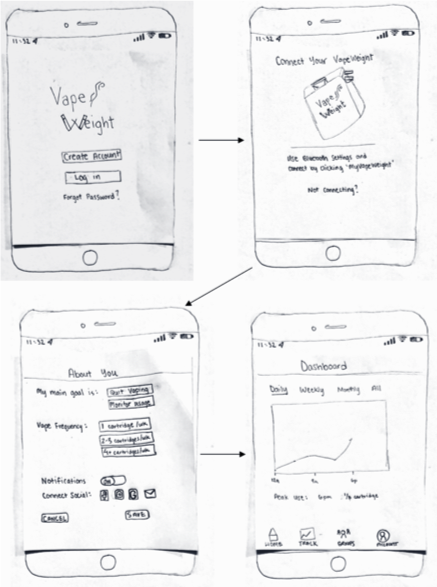 11:52
Vape
Weight
Create Account
Log in
Forgot Password?
11:52
Connect Your VapeWeight
Vape
Weight
Use Bluetooth Settings and
connect by clicking "MyVapeWeight"
Not Connecting?
11:52
About You
My main goal is: Quit Vaping
Monitor usage
Vape Frequency: 1 cartridge/wk
2-3 cartridges/wk
4+ cartridges/wk
Notifications
Connect Social:
CANCEL SAVE
11:52
Dashboard
Daily Weekly Monthly All
Peak use: 6pm cartridge
HOME TRACK GROUPS ACCOUNT